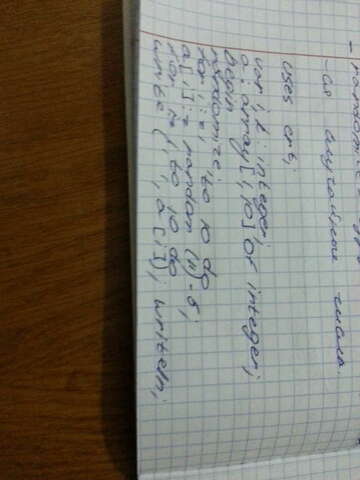 случайные числа.
uses crt;
var i, : integer;
a: array [1, 10] of integer;
begin
randomize;
for i:=1 to 10 do
a[i]:= random (11)-5;
for i:=1 to 10 do
write (' ', a[i]); writeln;